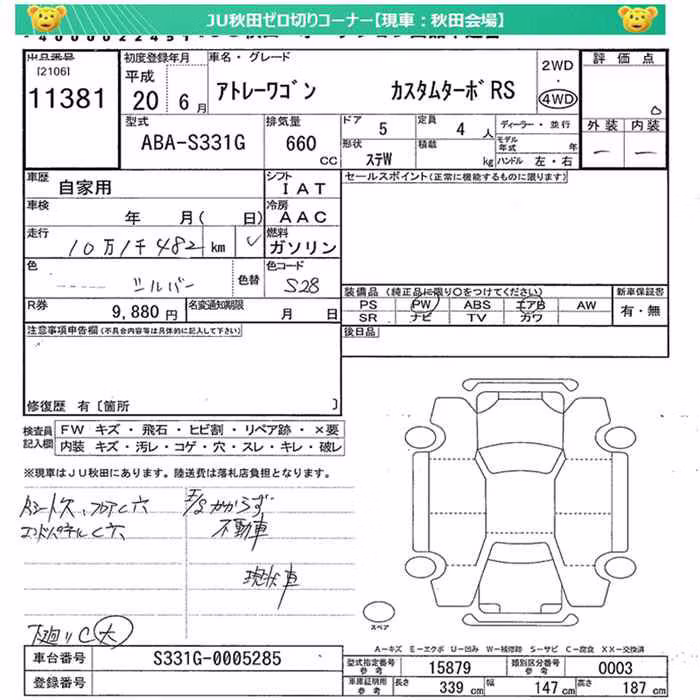 JU秋田ゼロ切りコーナー【現車：秋田会場】
出品番号
[2106]
11381
初度登録年月
平成
20 6月
車名・グレード
アトレーワゴン カスタムターボRS
2WD
・
4WD
評価点
外装 内装
型式
ABA-S331G
排気量
660 cc
ドア 5
定員 4 人
形状 ステW
積載 kg
ディーラー・並行
モデル年式 年
ハンドル 左・右
車歴 自家用
シフト IAT
セールスポイント(正常に機能するものに限ります)
車検 年 月( 日)
冷房 AAC
走行 10万1千482 km
燃料 ガソリン
色 シルバー 色替
色コード S28
R券 9,880 円
名変通知期限 月 日
装備品 (純正品に限り○をつけてください)
PS PW ABS エアB AW
SR ナビ TV カワ
新車保証書
有・無
注意事項申告欄(不具合内容等は具体的に記入して下さい)
後日品
修復歴 有〔箇所 〕
検査員記入欄
FW キズ・飛石・ヒビ割・リペア跡・×要
内装 キズ・汚レ・コゲ・穴・スレ・キレ・破レ
※現車はJU秋田にあります。陸送費は落札店負担となります。
Rシート欠、フロアC穴
エンドパネルC穴
E/gかからず
不動車
現状車
下廻りC大
スペア
A－キズ E－エクボ U－凹み W－補修跡 S－サビ C－腐食 XX－交換済
車台番号 S331G-0005285
登録番号
型式指定番号 参考 15879
類別区分番号 参考 0003
車庫証明用 参考 長さ 339 cm 幅 147 cm 高さ 187 cm